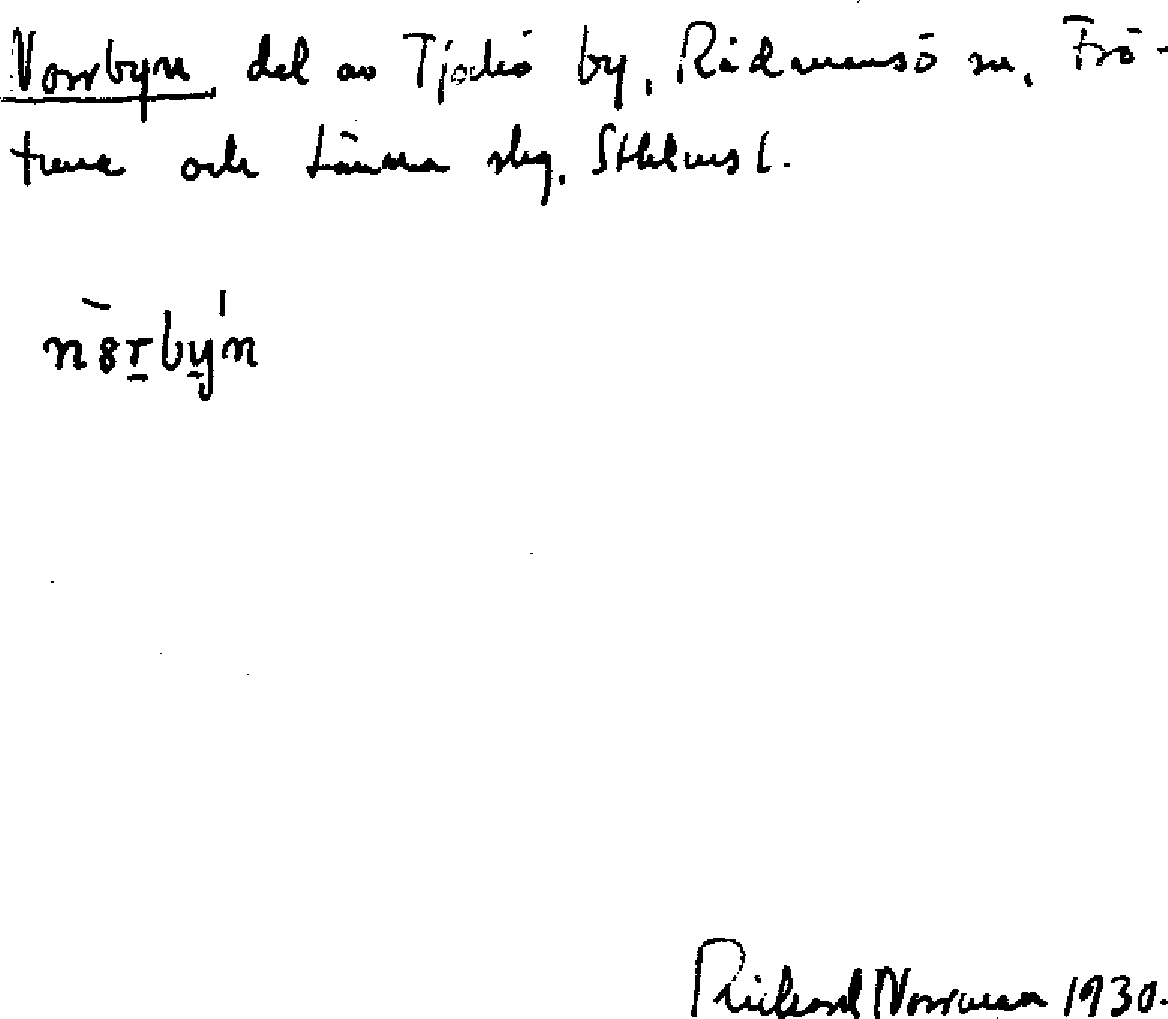 Norrbyn del av Tjockö by, Rådmansö sn, Frö-
tuna och Länna skg. Sthlms l.
Rickard Norrman 1930.